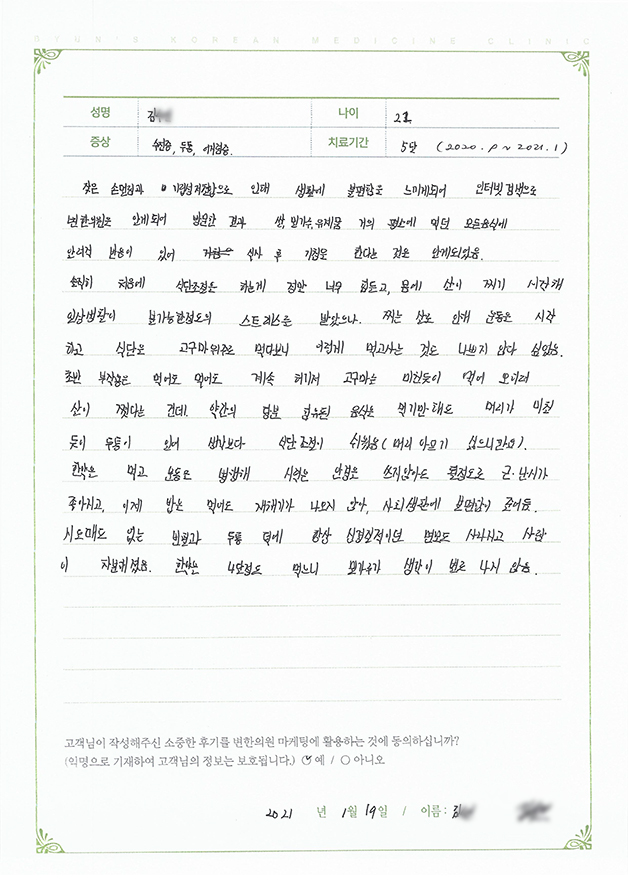 BYUN'S KOREAN MEDICINE CLINIC
성명 김 나이 21.
증상 수전증, 두통, 치료기간 5달 (2020. 9 ~ 2021. 1)
잦은 손떨림과 으로 인해 생활에 불편함을 느끼게되어 인터넷 검색으로
변한의원을 알게되어 방문한 결과 쌀, 밀가루, 유제품 거의 평소에 먹던 모든음식에
알러지 반응이 있어 식사 후 기침을 한다는 것을 알게되었음.
솔직히 처음에 식단조절을 하는게 정말 너무 힘들고, 몸에 살이 찌기 시작해
일상생활이 불가능한정도의 스트레스를 받았으나. 찌는 살로 인해 운동을 시작
하고 식단을 고구마위주로 먹다보니 이렇게 먹고사는 것도 나쁘지 않다 싶었음.
초반 부작용은 먹어도 먹어도 계속 허기져 고구마를 미친듯이 먹어 오히려
살이 쪘다는 건데. 약간의 당분 함유된 음식을 먹기만 해도 머리가 미친
듯이 두통이 있어 생각보다 식단조절이 쉬웠음 (머리 아프기 싫으니까요).
한약을 먹고 운동을 병행해 시력은 안경을 쓰지않아도 될정도로 근·난시가
좋아지고, 이제 밥을 먹어도 재채기가 나오지 않아, 사회생활에 불편함이 줄어듬.
시도때도 없는 빈혈과 두통 덕에 항상 신경질적이던 면모도 사라지고 사람
이 차분해졌음. 한약을 4달정도 먹으니 밀가루가 생각이 별로 나지 않음.
고객님이 작성해주신 소중한 후기를 변한의원 마케팅에 활용하는 것에 동의하십니까?
(익명으로 기재하여 고객님의 정보는 보호됩니다.) 예 / 아니오
2021 년 1월 19일 / 이름 : 김